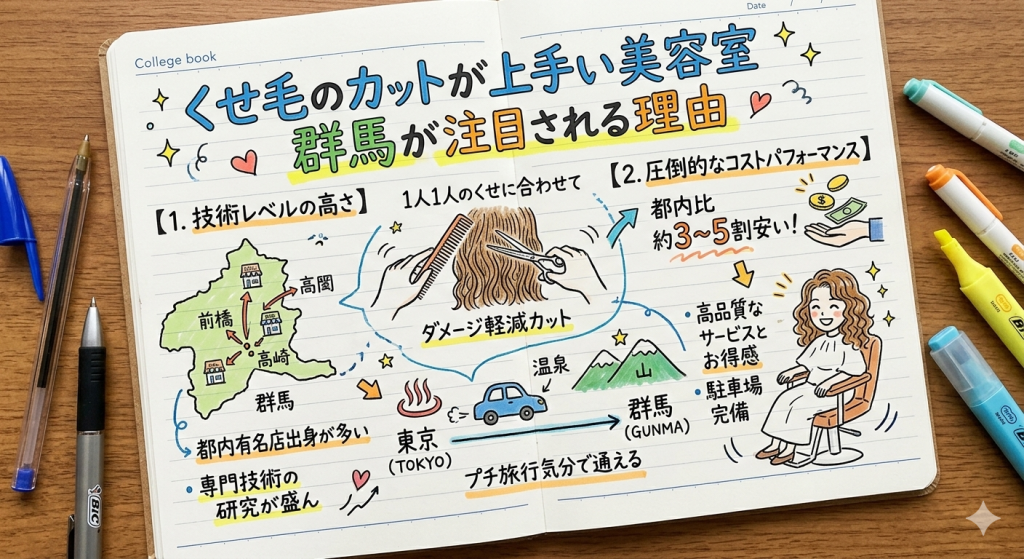 College book
Date
くせ毛のカットが上手い美容室
群馬が注目される理由
【1. 技術レベルの高さ】
高関
前橋
高崎
群馬
都内有名店出身が多い
・専門技術の
研究が盛ん
1人1人のくせに合わせて
ダメージ軽減カット
温泉
山
東京
(TOKYO)
群馬
(GUNMA)
プチ旅行気分で通える
【2. 圧倒的なコストパフォーマンス】
都内比
約3~5割安い!
$
・高品質な
サービスと
お得感
・駐車場
完備
BIC